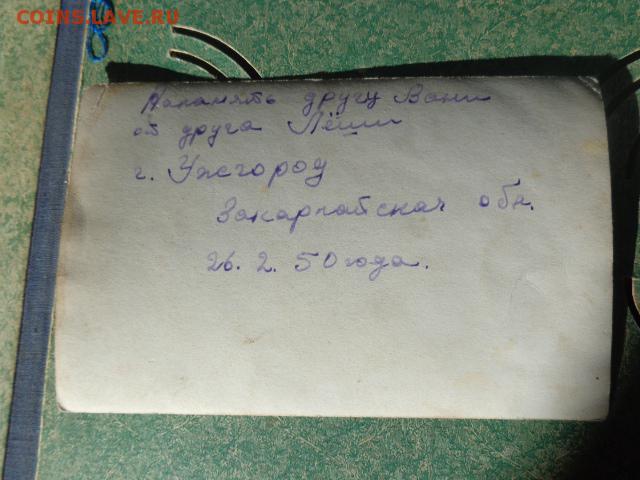 COINS.LAVE.RU
Напамять другу Вани
от друга Лёши
г. Ужгород
Закарпатская обл.
26. 2. 50 года.